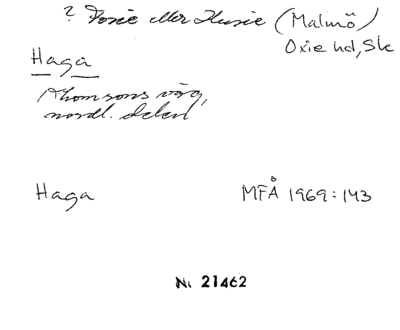 ? Fosie eller Husie (Malmö)
Oxie hd, Sk
Haga
Thomsons väg,
nordl. delen
Haga MFÅ 1969:143
N: 21462